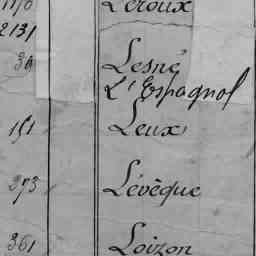 Leroux
2131
Lesné
L'Espagnol
151 Leux
273 Lévèque
361 Loizon